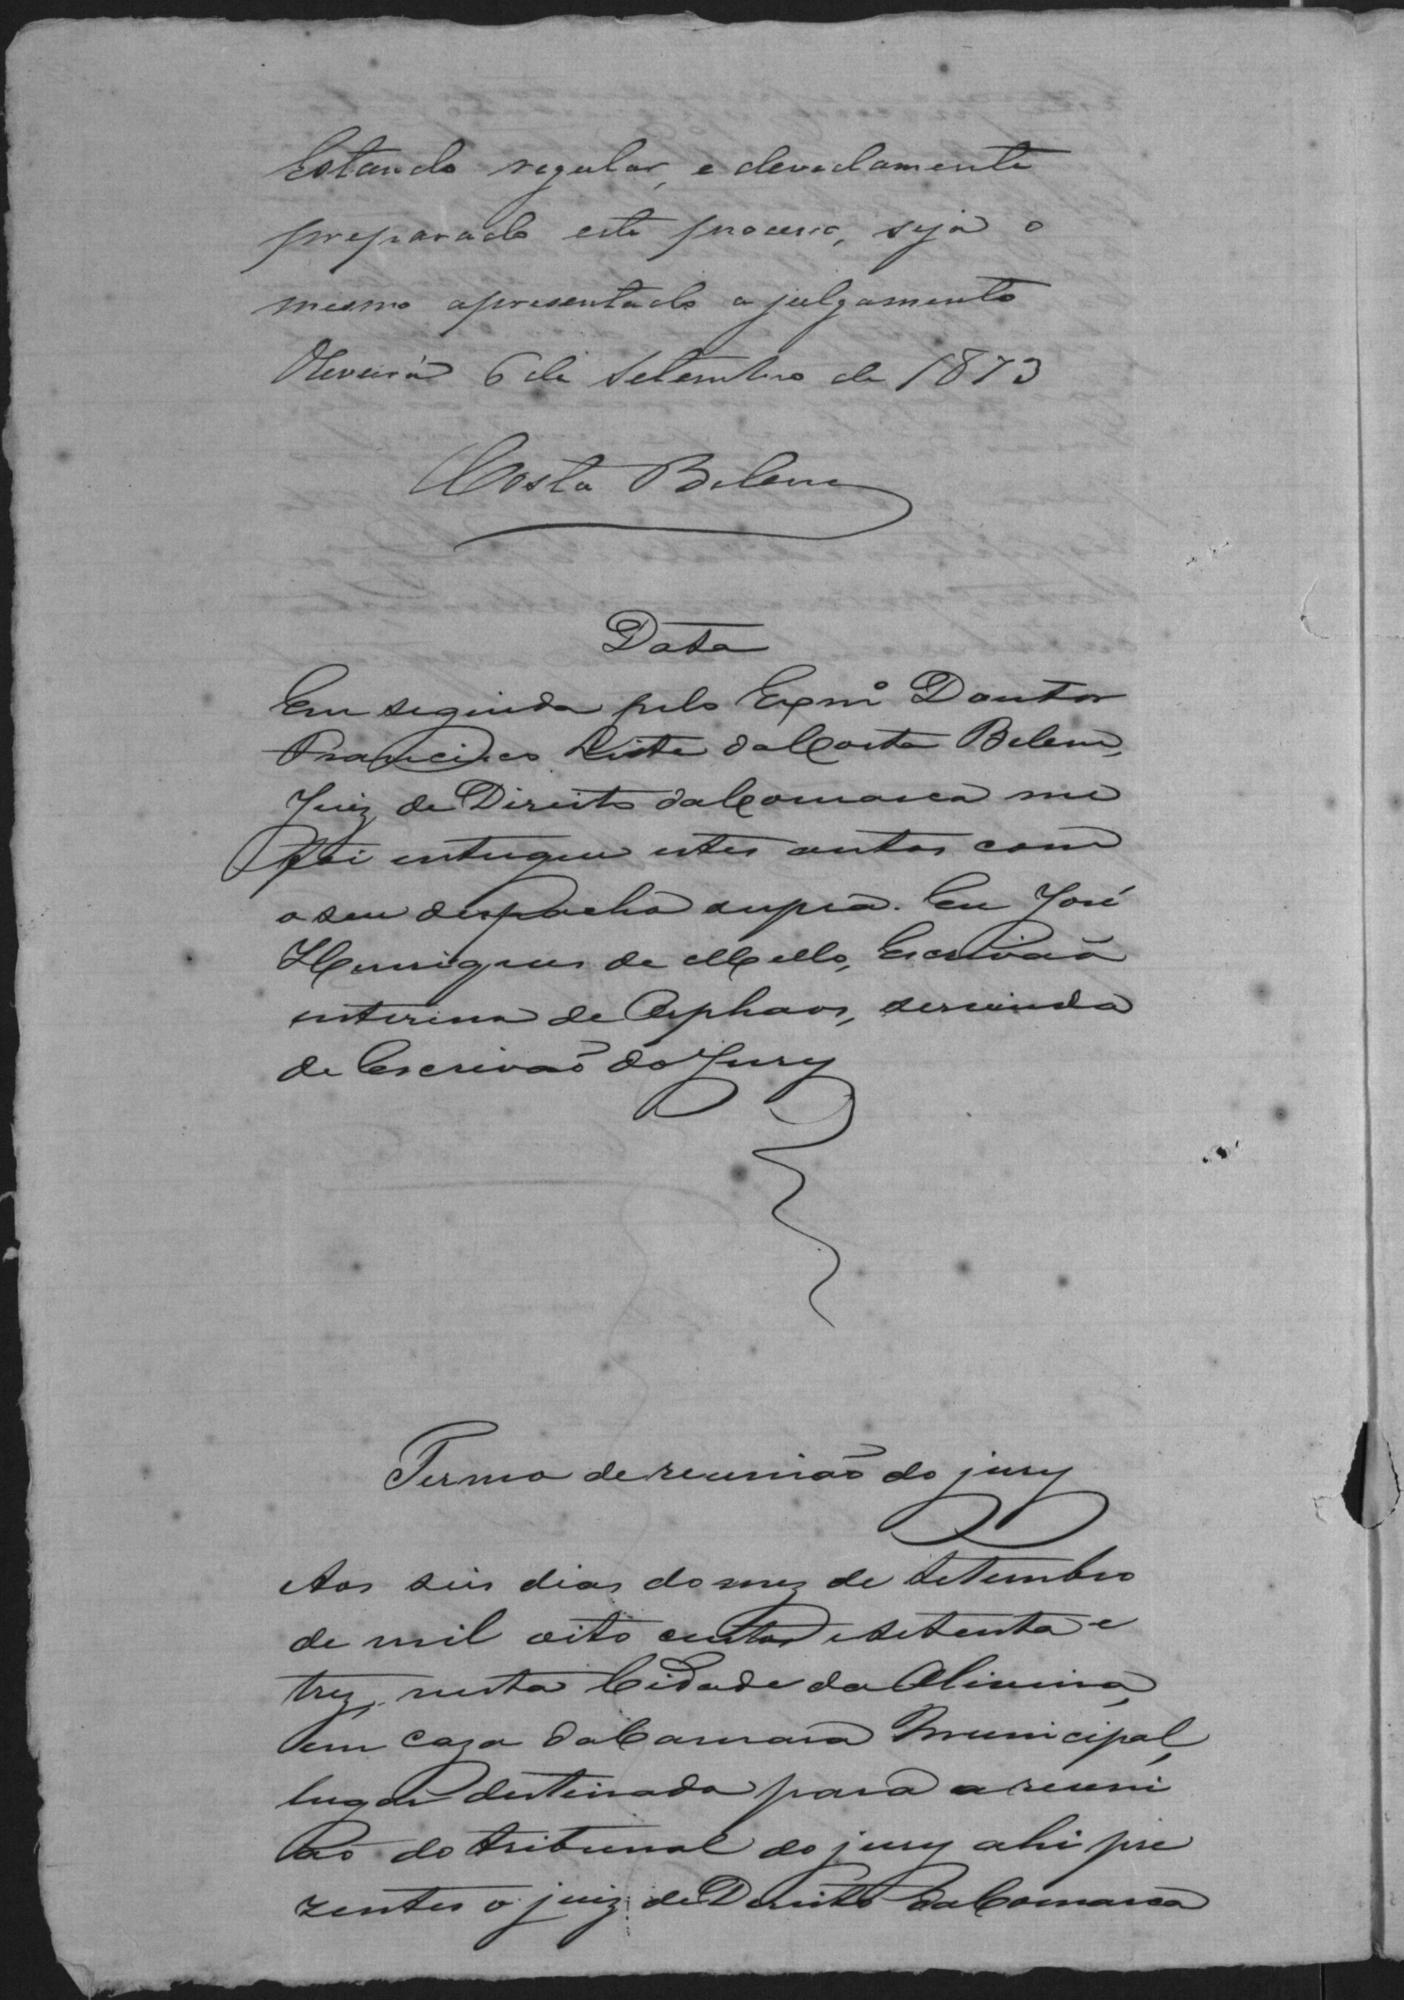 Estando regular, e devedamente
preparado este processo, seja o
mesmo apresentado a julgamento
Oliveira 6 de Setembro de 1873
Costa Belem
Data
Em seguida pelo Exmº Doutor
Francisco Leite da Costa Belem,
Juiz de Direito da Comarca me
foi entregue estes autos com
o seu despacho supra. Eu José
Henriques de Mello, Escrivaõ
interino de Orphaos, servindo
de Escrivaõ do Jury
Termo de reuniaõ do jury
Aos seis dias do mez de Setembro
de mil oito centos e setenta e
trez, nesta Cidade da Oliveira,
em caza da Camara Municipal,
lugar destinado para a reuni
aõ do tribunal do jury ahi pre
zentes o juiz de Direito da Comarca